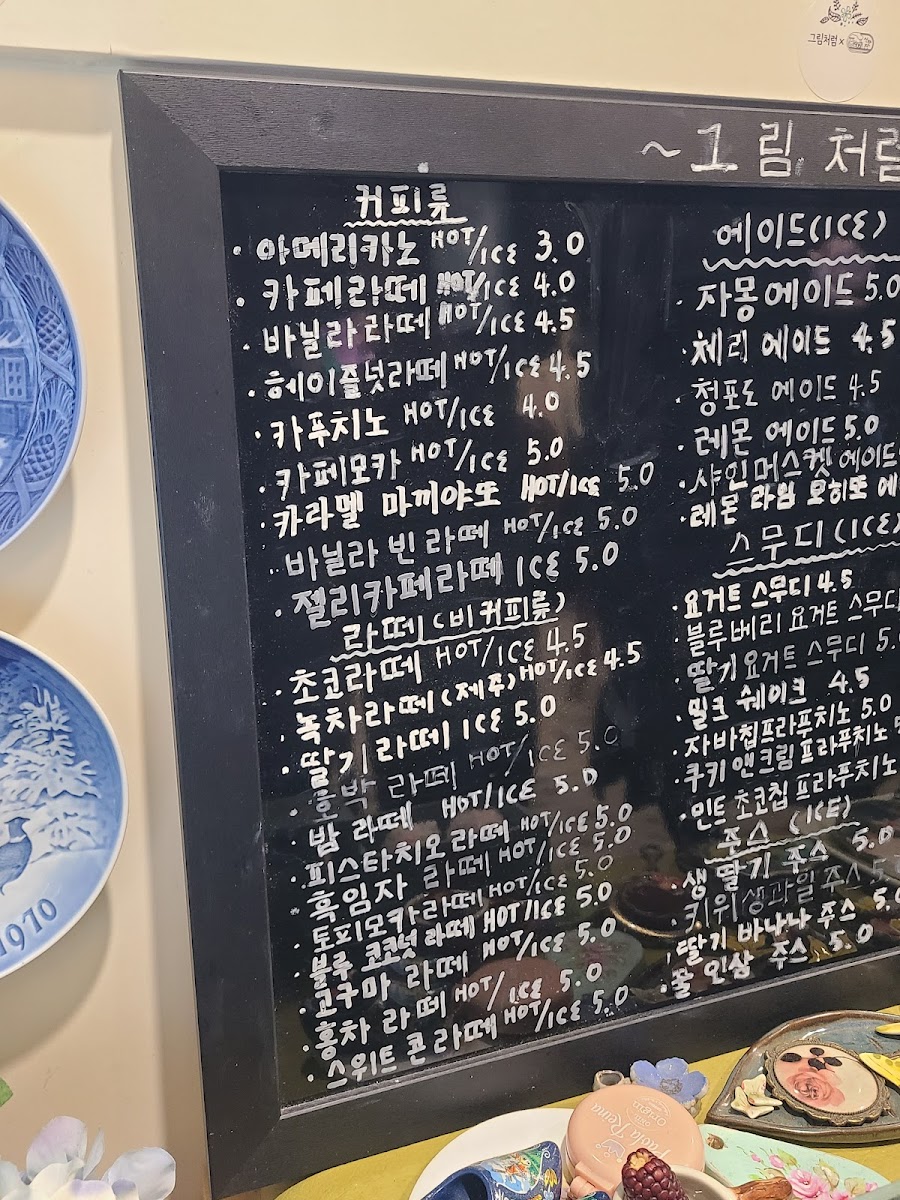 그림처럼 x
~그림 처럼
커피류
· 아메리카노 HOT/ICE 3.0
· 카페라떼 HOT/ICE 4.0
· 바닐라라떼 HOT/ICE 4.5
· 헤이즐넛라떼 HOT/ICE 4.5
· 카푸치노 HOT/ICE 4.0
· 카페모카 HOT/ICE 5.0
· 카라멜 마끼야또 HOT/ICE 5.0
· 바닐라 빈 라떼 HOT/ICE 5.0
· 젤리카페라떼 ICE 5.0
라떼(비커피류)
· 초코라떼 HOT/ICE 4.5
· 녹차라떼(제주) HOT/ICE 4.5
· 딸기라떼 ICE 5.0
· 호박 라떼 HOT/ICE 5.0
· 밤 라떼 HOT/ICE 5.0
· 피스타치오라떼 HOT/ICE 5.0
· 흑임자 라떼 HOT/ICE 5.0
· 토피모카라떼 HOT/ICE 5.0
· 블루 코코넛 라떼 HOT/ICE 5.0
· 고구마 라떼 HOT/ICE 5.0
· 홍차 라떼 HOT/ICE 5.0
· 스위트 콘 라떼 HOT/ICE 5.0
에이드(ICE)
· 자몽에이드 5.0
· 체리 에이드 4.5
· 청포도 에이드 4.5
· 레몬 에이드 5.0
· 샤인머스켓 에이드
· 레몬 라임 모히또 에
스무디(ICE)
· 요거트 스무디 4.5
· 블루베리 요거트 스무디
· 딸기요거트 스무디 5.0
· 밀크 쉐이크 4.5
· 자바칩프라푸치노 5.0
· 쿠키앤크림프라푸치노
· 민트 초코칩 프라푸치노
주스 (ICE)
· 생 딸기 주스 5.0
· 키위생과일주스
· 딸기 바나나 주스 5.0
· 꿀 인삼 주스 5.0
1970
Paola Reina